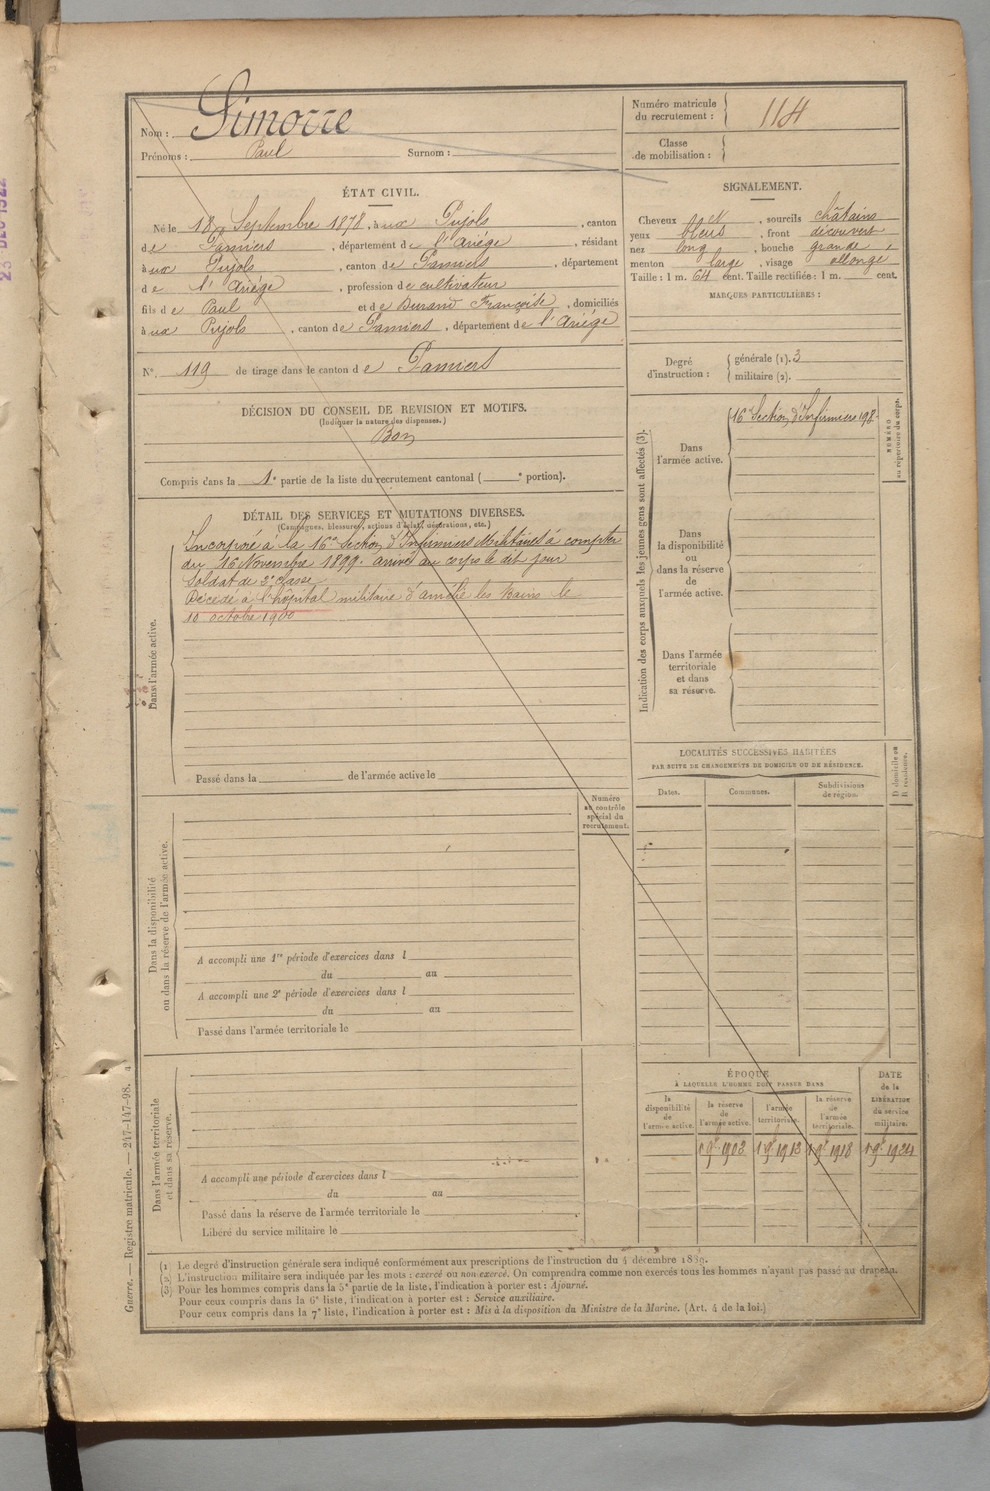 Nom : Simorre
Prénoms : Paul Surnom :
Numéro matricule du recrutement : 114
Classe de mobilisation :
ÉTAT CIVIL.
Né le 18 Septembre 1878, à aux Pujols, canton
de Pamiers, département de l'Ariége, résidant
à aux Pujols, canton de Pamiers, département
de l'Ariége, profession de cultivateur
fils de Paul et de Durand Françoise, domiciliés
à aux Pujols, canton de Pamiers, département de l'Ariége
N°. 119 de tirage dans le canton de Pamiers
SIGNALEMENT.
Cheveux ch N, sourcils châtains
yeux bleus, front découvert
nez long, bouche grande,
menton large, visage allongé
Taille : 1 m. 64 cent. Taille rectifiée : 1 m. cent.
MARQUES PARTICULIÈRES :
Degré d'instruction : générale (1). 3
militaire (2).
DÉCISION DU CONSEIL DE REVISION ET MOTIFS.
(Indiquer la nature des dispenses.)
Bon
Compris dans la 1e partie de la liste du recrutement cantonal ( e portion).
DÉTAIL DES SERVICES ET MUTATIONS DIVERSES.
(Campagnes, blessures, actions d'éclat, décorations, etc.)
Incorporé à la 16e Section d'Infirmiers Militaires à compter
du 16 Novembre 1899. arrivé au corps le dit jour
Soldat de 2e classe
Décédé à l'hôpital militaire d'amélie les bains le
10 octobre 1900
Dans l'armée active.
Passé dans la de l'armée active le
Indication des corps auxquels les jeunes gens sont affectés (3).
Dans l'armée active.
16e Section d'Infirmiers 198
NUMÉRO au répertoire du corps.
Dans la disponibilité ou dans la réserve de l'armée active.
Dans l'armée territoriale et dans sa réserve.
LOCALITÉS SUCCESSIVES HABITÉES
PAR SUITE DE CHANGEMENTS DE DOMICILE OU DE RÉSIDENCE.
Dates. Communes. Subdivisions de région. D domicile ou R résidence.
Numéro au contrôle spécial du recrutement.
Dans la disponibilité ou dans la réserve de l'armée active.
A accompli une 1re période d'exercices dans l
du au
A accompli une 2e période d'exercices dans l
du au
Passé dans l'armée territoriale le
Dans l'armée territoriale et dans sa réserve.
A accompli une période d'exercices dans l
du au
Passé dans la réserve de l'armée territoriale le
Libéré du service militaire le
ÉPOQUE
À LAQUELLE L'HOMME DOIT PASSER DANS
la disponibilité de l'armée active. la réserve de l'armée active. l'armée territoriale. la réserve de l'armée territoriale. DATE de la LIBÉRATION du service militaire.
1 9bre 1903 1 9bre 1913 1 9bre 1918 1 9bre 1924
(1) Le degré d'instruction générale sera indiqué conformément aux prescriptions de l'instruction du 4 décembre 1889.
(2) L'instruction militaire sera indiquée par les mots : exercé ou non exercé. On comprendra comme non exercés tous les hommes n'ayant pas passé au drapeau.
(3) Pour les hommes compris dans la 5e partie de la liste, l'indication à porter est : Ajourné.
Pour ceux compris dans la 6e liste, l'indication à porter est : Service auxiliaire.
Pour ceux compris dans la 7e liste, l'indication à porter est : Mis à la disposition du Ministre de la Marine. (Art. 4 de la loi.)
Guerre. — Registre matricule. — 247-147-98.
DEC 1922